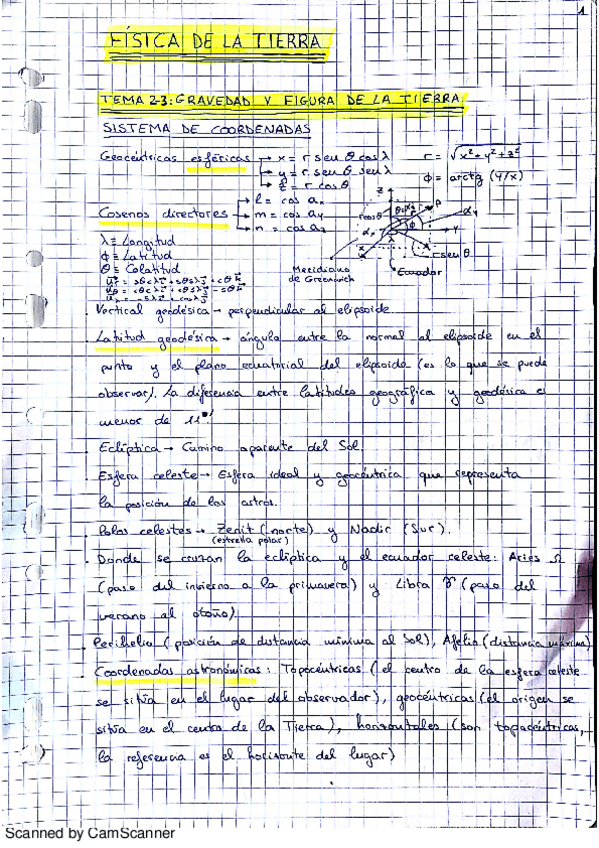 1
FÍSICA DE LA TIERRA
TEMA 2-3: GRAVEDAD Y FIGURA DE LA TIERRA
SISTEMA DE COORDENADAS
Geocéntricas esféricas → x = r sen θ cos λ r = √x²+y²+z²
→ y = r sen θ sen λ ϕ = arctg (y/x)
→ z = r cos θ
Cosenos directores → l = cos αx
→ m = cos αy
→ n = cos αz
z P αy y x r cos θ r sen θ
λ ≡ Longitud
ϕ ≡ Latitud
θ ≡ Colatitud
Meridiano de Greenwich
Ecuador
Vertical geodésica → perpendicular al elipsoide
Latitud geodésica → ángulo entre la normal al elipsoide en el
punto y el plano ecuatorial del elipsoide (es lo que se puede
observar). La diferencia entre latitudes geográfica y geodésica es
menor de 11'
Eclíptica → Camino aparente del Sol.
Esfera celeste → Esfera ideal y geocéntrica que representa
la posición de los astros.
Polos celestes → Zenit (norte) y Nadir (Sur).
(estrella polar)
Donde se cruzan la eclíptica y el ecuador celeste: Aries ♎
(paso del invierno a la primavera) y Libra ♈ (paso del
verano al otoño).
Perihelio (posición de distancia mínima al Sol), Afelio (distancia máxima)
Coordenadas astronómicas: Topocéntricas (el centro de la esfera celeste
se sitúa en el lugar del observador), geocéntricas (el origen se
sitúa en el centro de la Tierra), horizontales (son topocéntricas,
la referencia es el horizonte del lugar)
Scanned by CamScanner